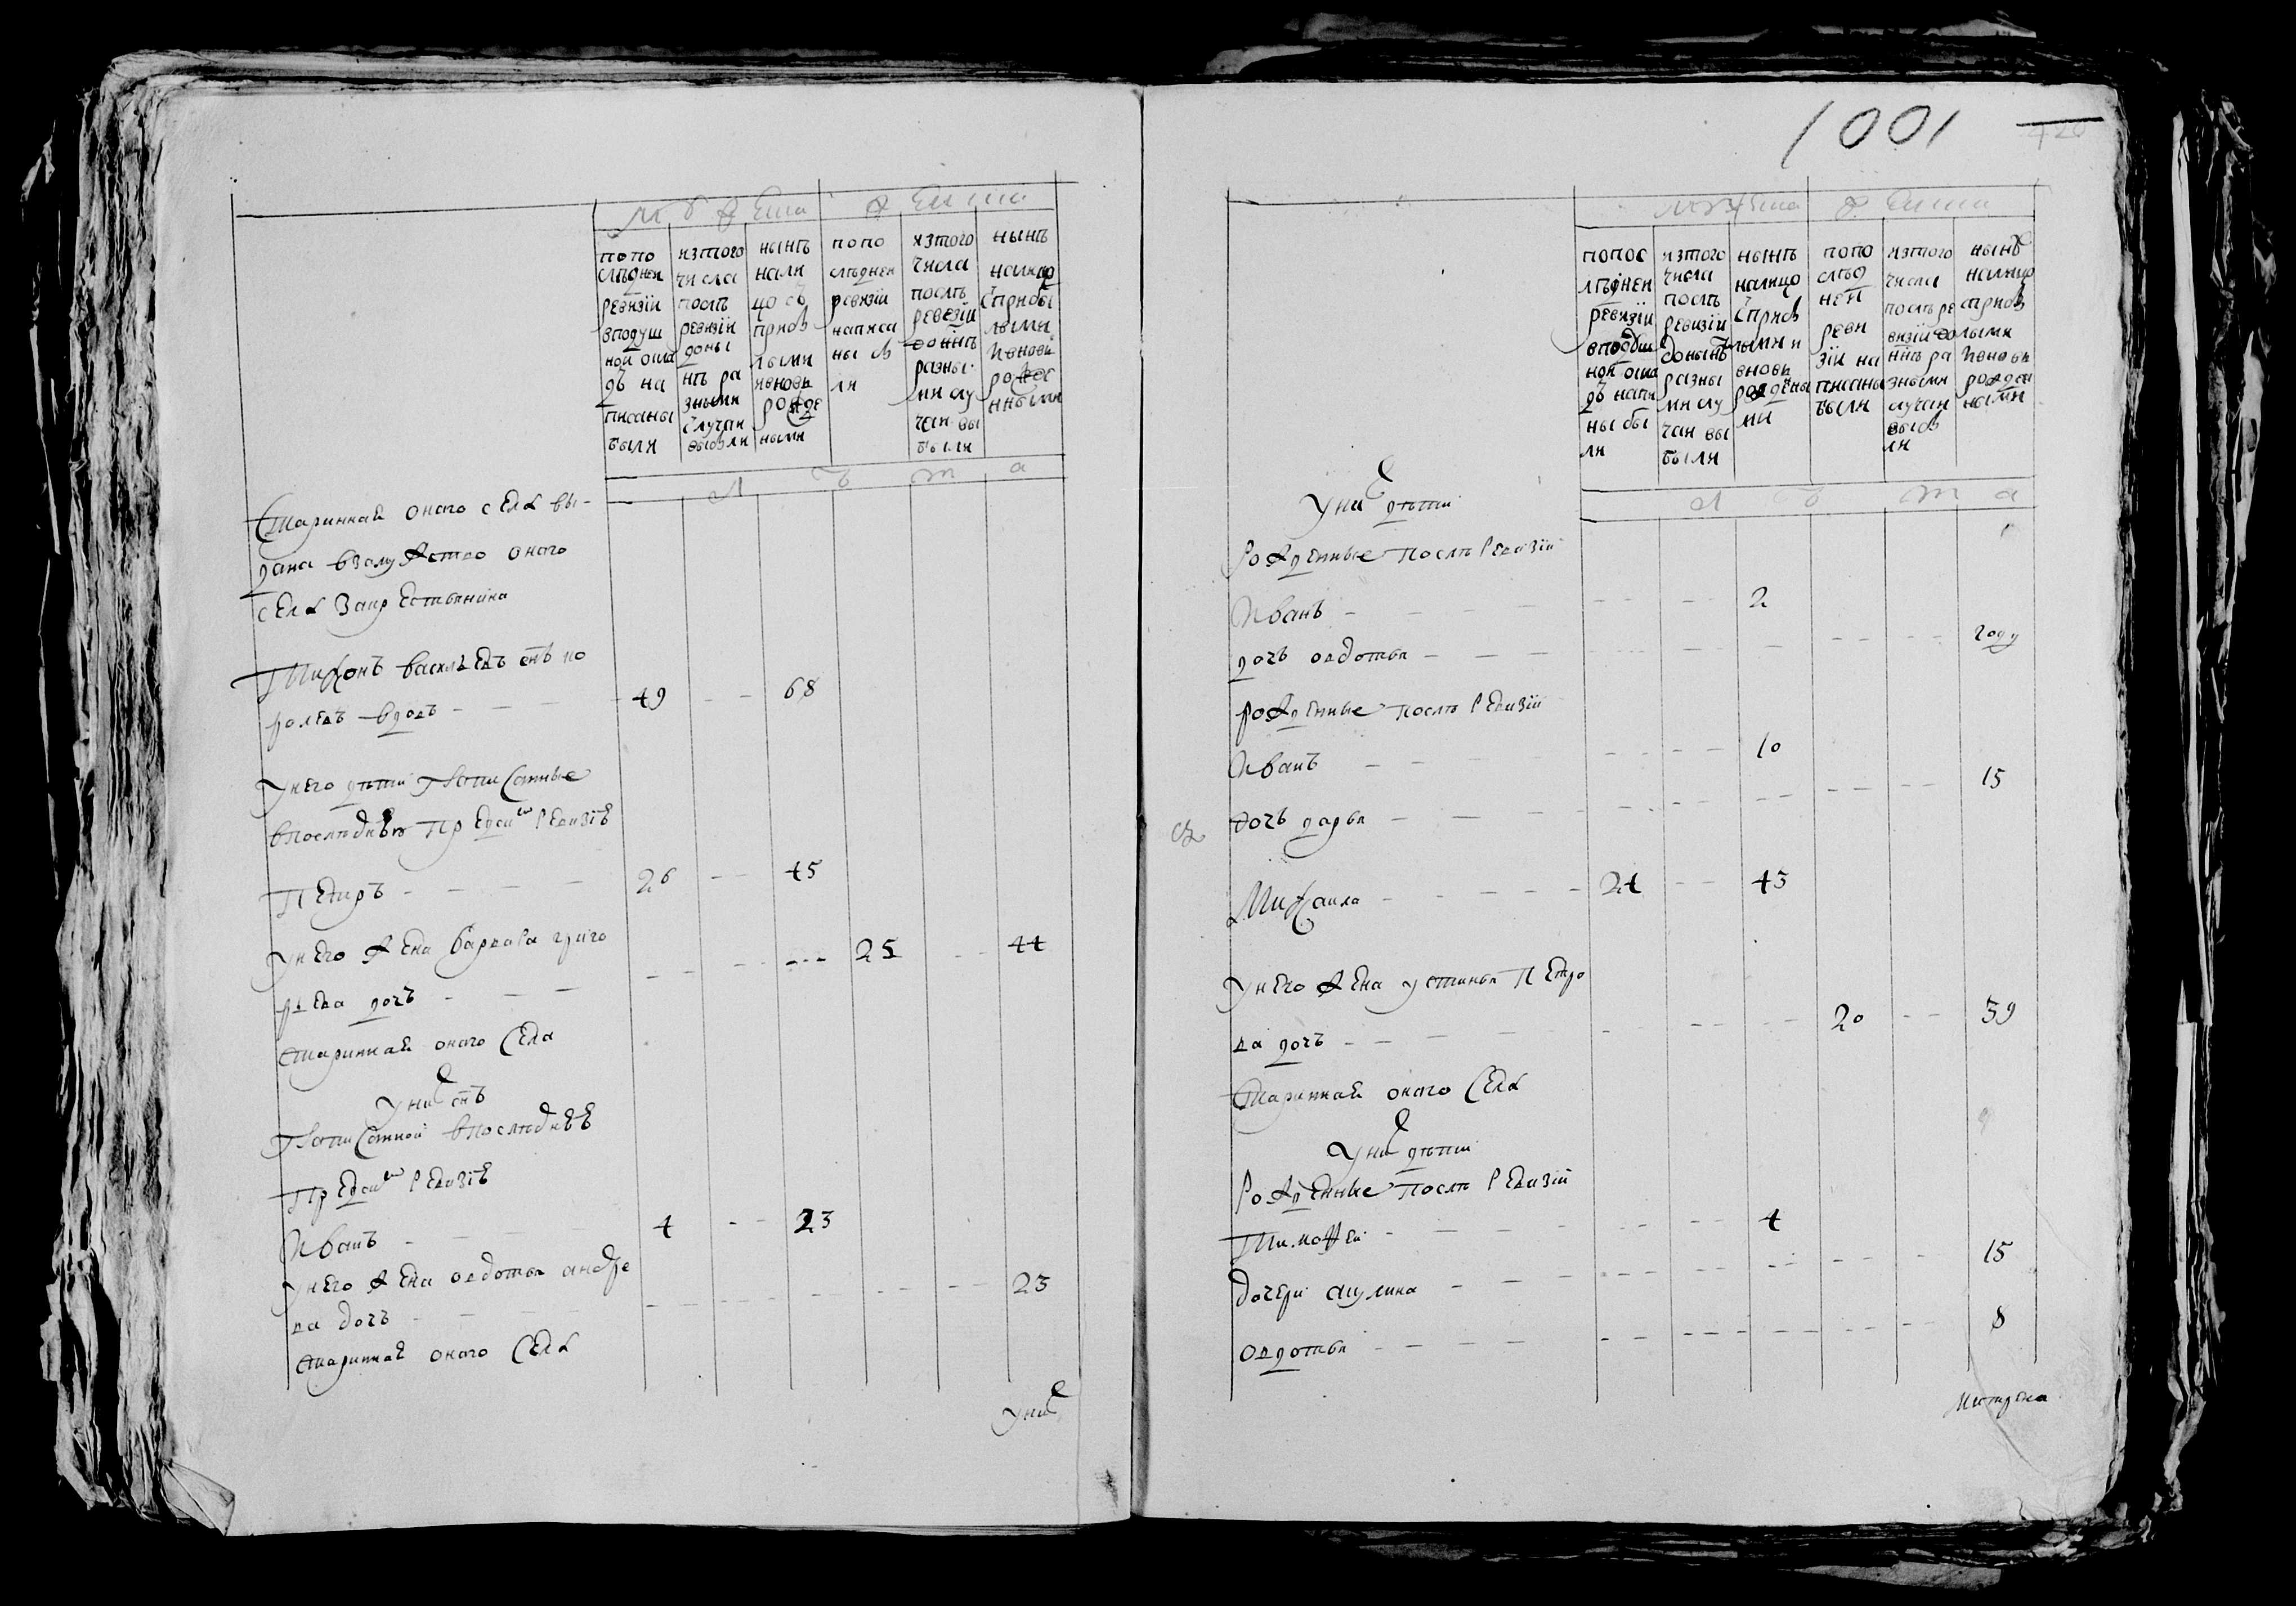 мужеска женска
попо
слѣдней
ревизіи
вподуш
ной окла
дѣ на
писаны
были
изтого
числа
послѣ
ревизіи
доны
нѣ ра
зными
случаи
выбыли
нынѣ
нали
цо съ
прибы
лыми
ивновь
рожде
ными
попо
слѣдней
ревизіи
написа
ны бы
ли
изтого
числа
послѣ
ревезіи
донынѣ
разны
ми слу
чаи вы
были
нынѣ
налицо
сприбы
лыми
ивновь
рожде
нными
л ѣ т а
Стариннаѣ оного села вы-
дана взамужство оного
села Закрестьянина
Тихонъ васильевъ снъ ко
ролевъ вдовъ 49 68
Унего дѣти Написанные
впослѣднѣй пред сей ревизіѣ
Петръ 26 45
унего жена варвара григо
рьева дочь 25 44
стариннаѣ оного Села
уних снъ
Написанной впослѣднѣѣ
пред сей ревизіѣ
Иванъ 4 23
унего жена овдотья андре
ва дочь 23
стариннаѣ оного Села
уних
1001
420
мужеска женска
попос
лѣдней
ревизіи
вподуш
ной окла
дѣ напи
ны бы
ли
изтого
числа
послѣ
ревизіи
донынѣ
разны
ми слу
чаи вы
были
нынѣ
налицо
сприбы
лыми и
вновь
рождены
ми
попо
слѣд
ней
реви
зіи на
писаны
были
изтого
числа
послѣ ре
визіи до
нынѣ ра
зными
случаи
выбы
ли
нынѣ
налицо
сприбы
лыми
ивновь
рожден
ными
л ѣ т а
Уних дѣти
рожденные послѣ ревизіи
Иванъ 2
дочь овдотья году
рожденные послѣ ревизіи
Иванъ 10
дочь дарья 15
Михаила 24 43
Унего жена устинья Петро
ва дочь 20 39
Стариннаѣ оного Села
Уних дѣти
Рожденные послѣ ревизіи
Тимофей 4
дочери акулина 15
овдотья 8
матрена